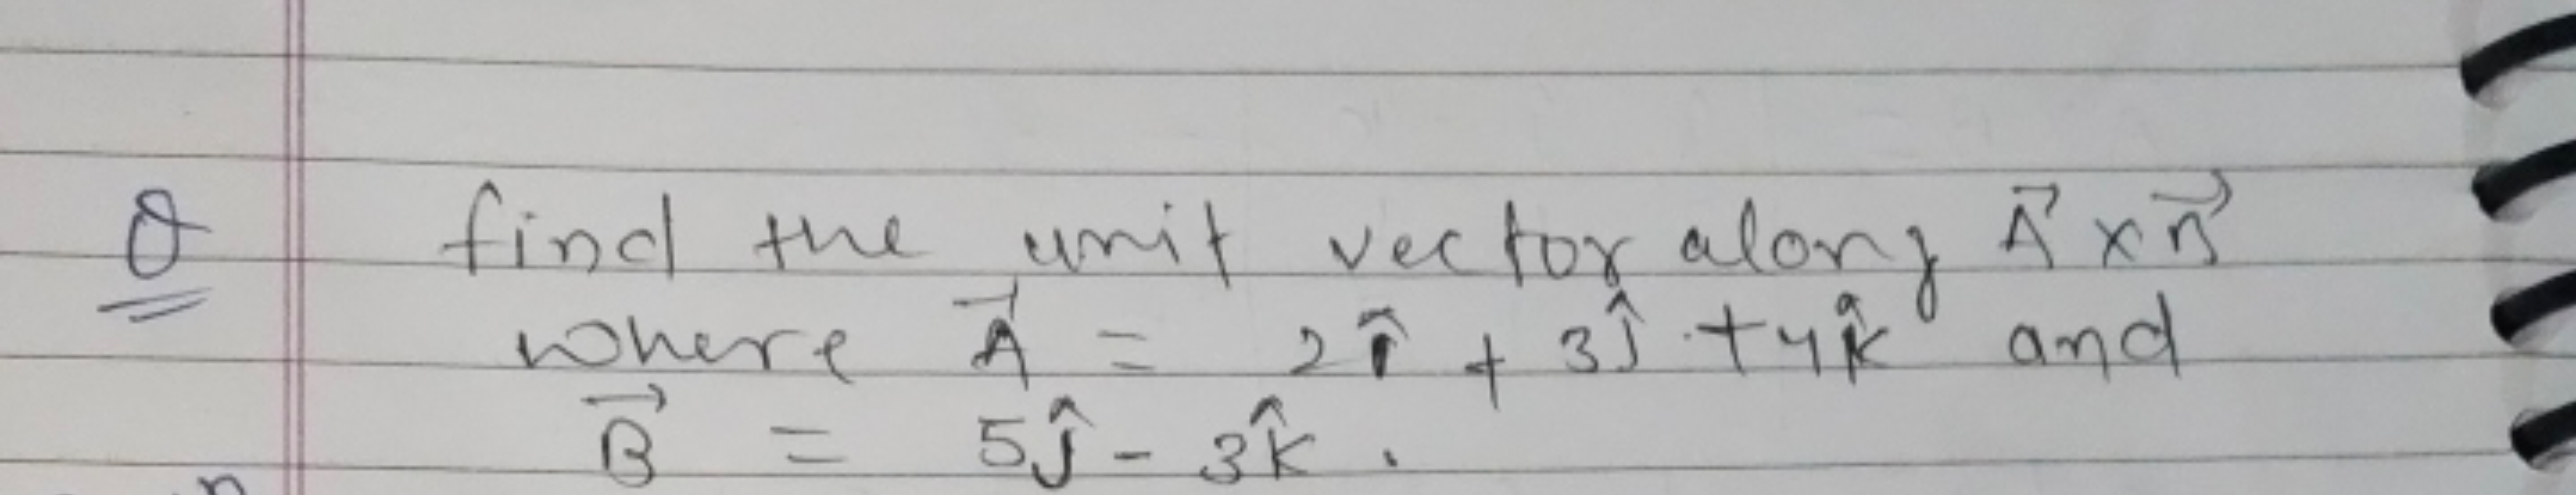 Q find the unit vector along A⃗ × B⃗
where A⃗ = 2î + 3ĵ + 4k̂ and
B⃗ = 5ĵ - 3k̂.